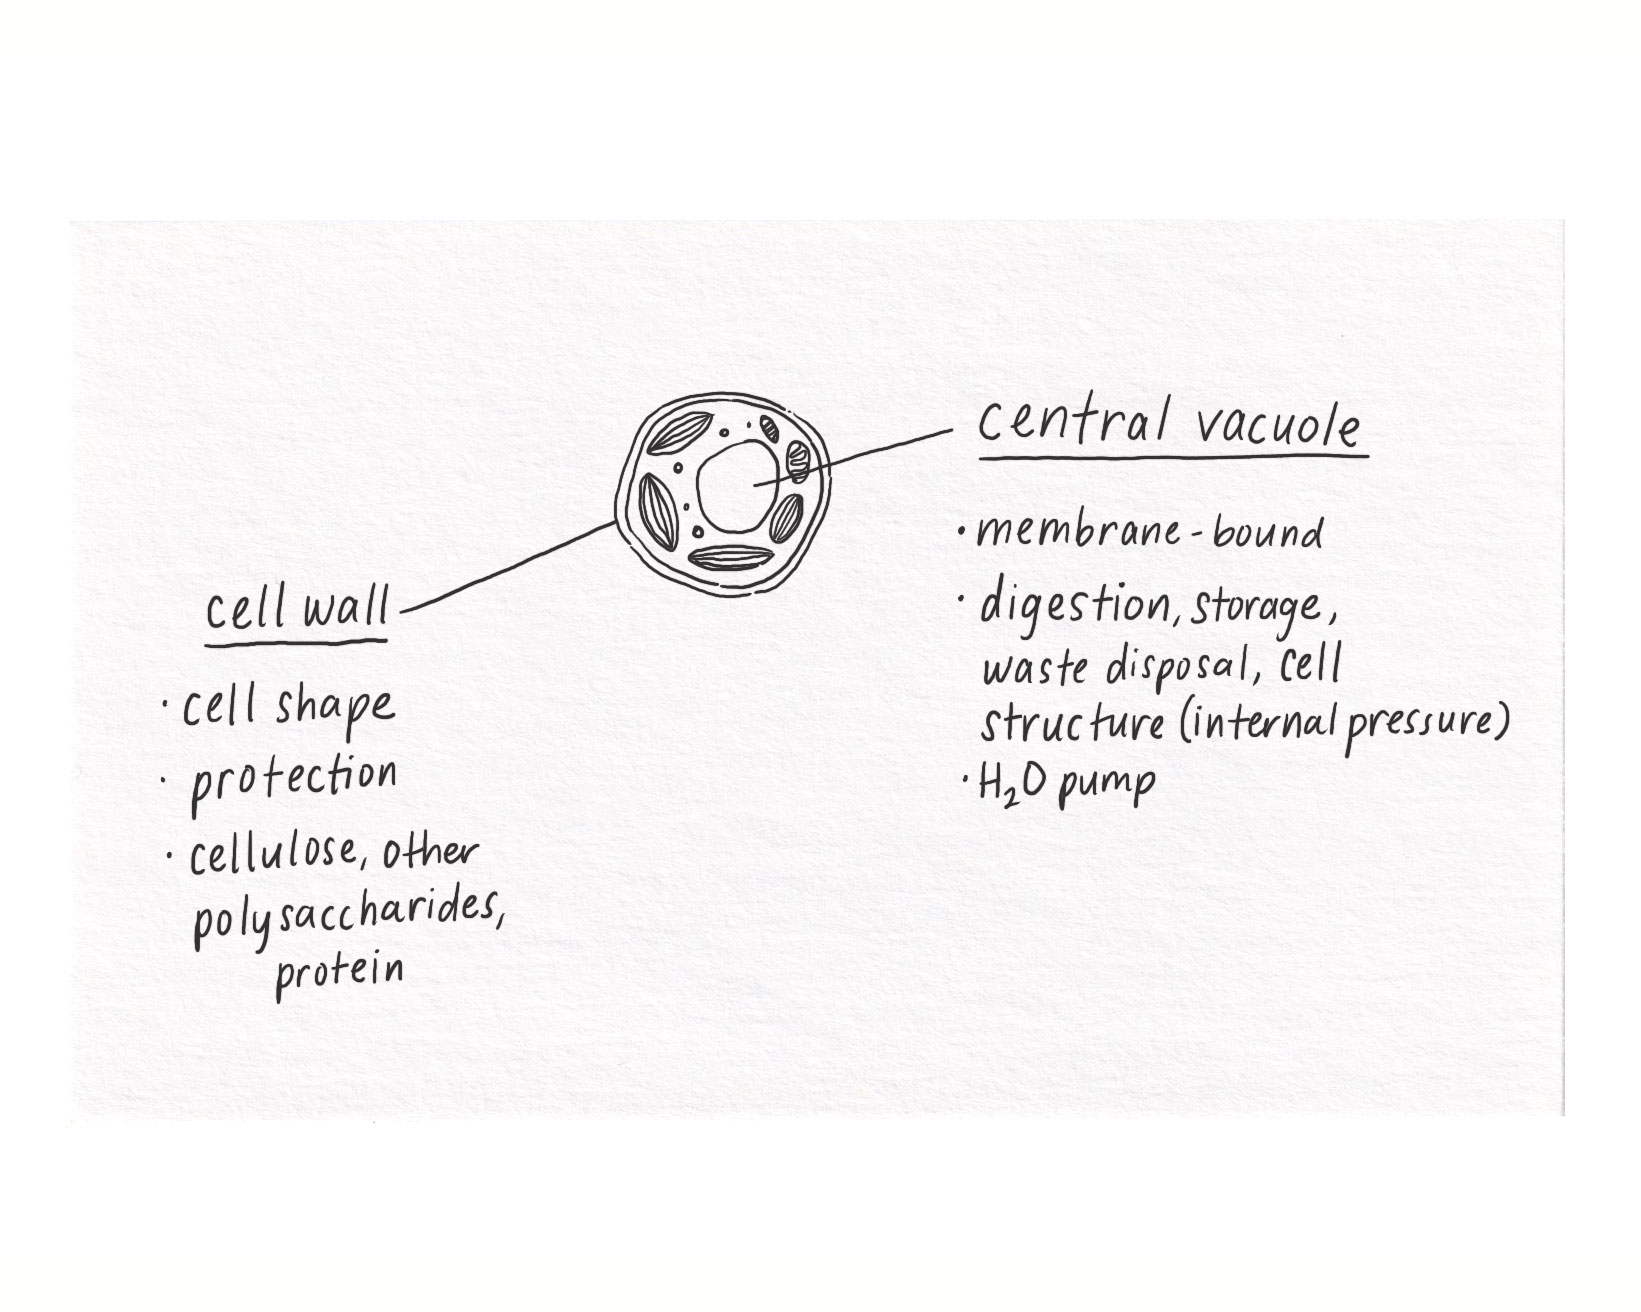 central vacuole
• membrane-bound
• digestion, storage,
waste disposal, cell
structure (internal pressure)
• H₂O pump
cell wall
• cell shape
• protection
• cellulose, other
polysaccharides,
protein